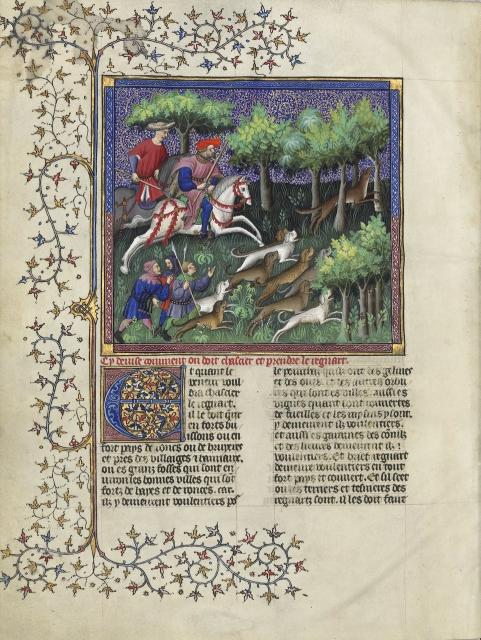 Cy devise comment on doit chascier et prendre le regnart.
Et quant le
veneur voul
dra chascier
le regnart.
il le doit que
en forts bu
issons ou en
fort pays de ronces ou de bruyere
et pres des villaiges
ou es grans fosses qui sont en
uiron les bonnes villes qui sont
fortz de hayes et de ronces. car
ilz y demeurent voulentiers po
le qui sont des gelines
et des oues et les autres
es qui sont es villes. aussi es
vignes quant sont couvertes
de fueilles et les
y demeurent ilz voulentiers.
et aussi es garannes des conilz
et des lievres demeurent ilz
voulentiers. Et brief regnart
demeure voulentiers en tout
fort pays et couvert. Et si scet
ou les terriers et tesnieres des
regnartz sont. il les doit faire